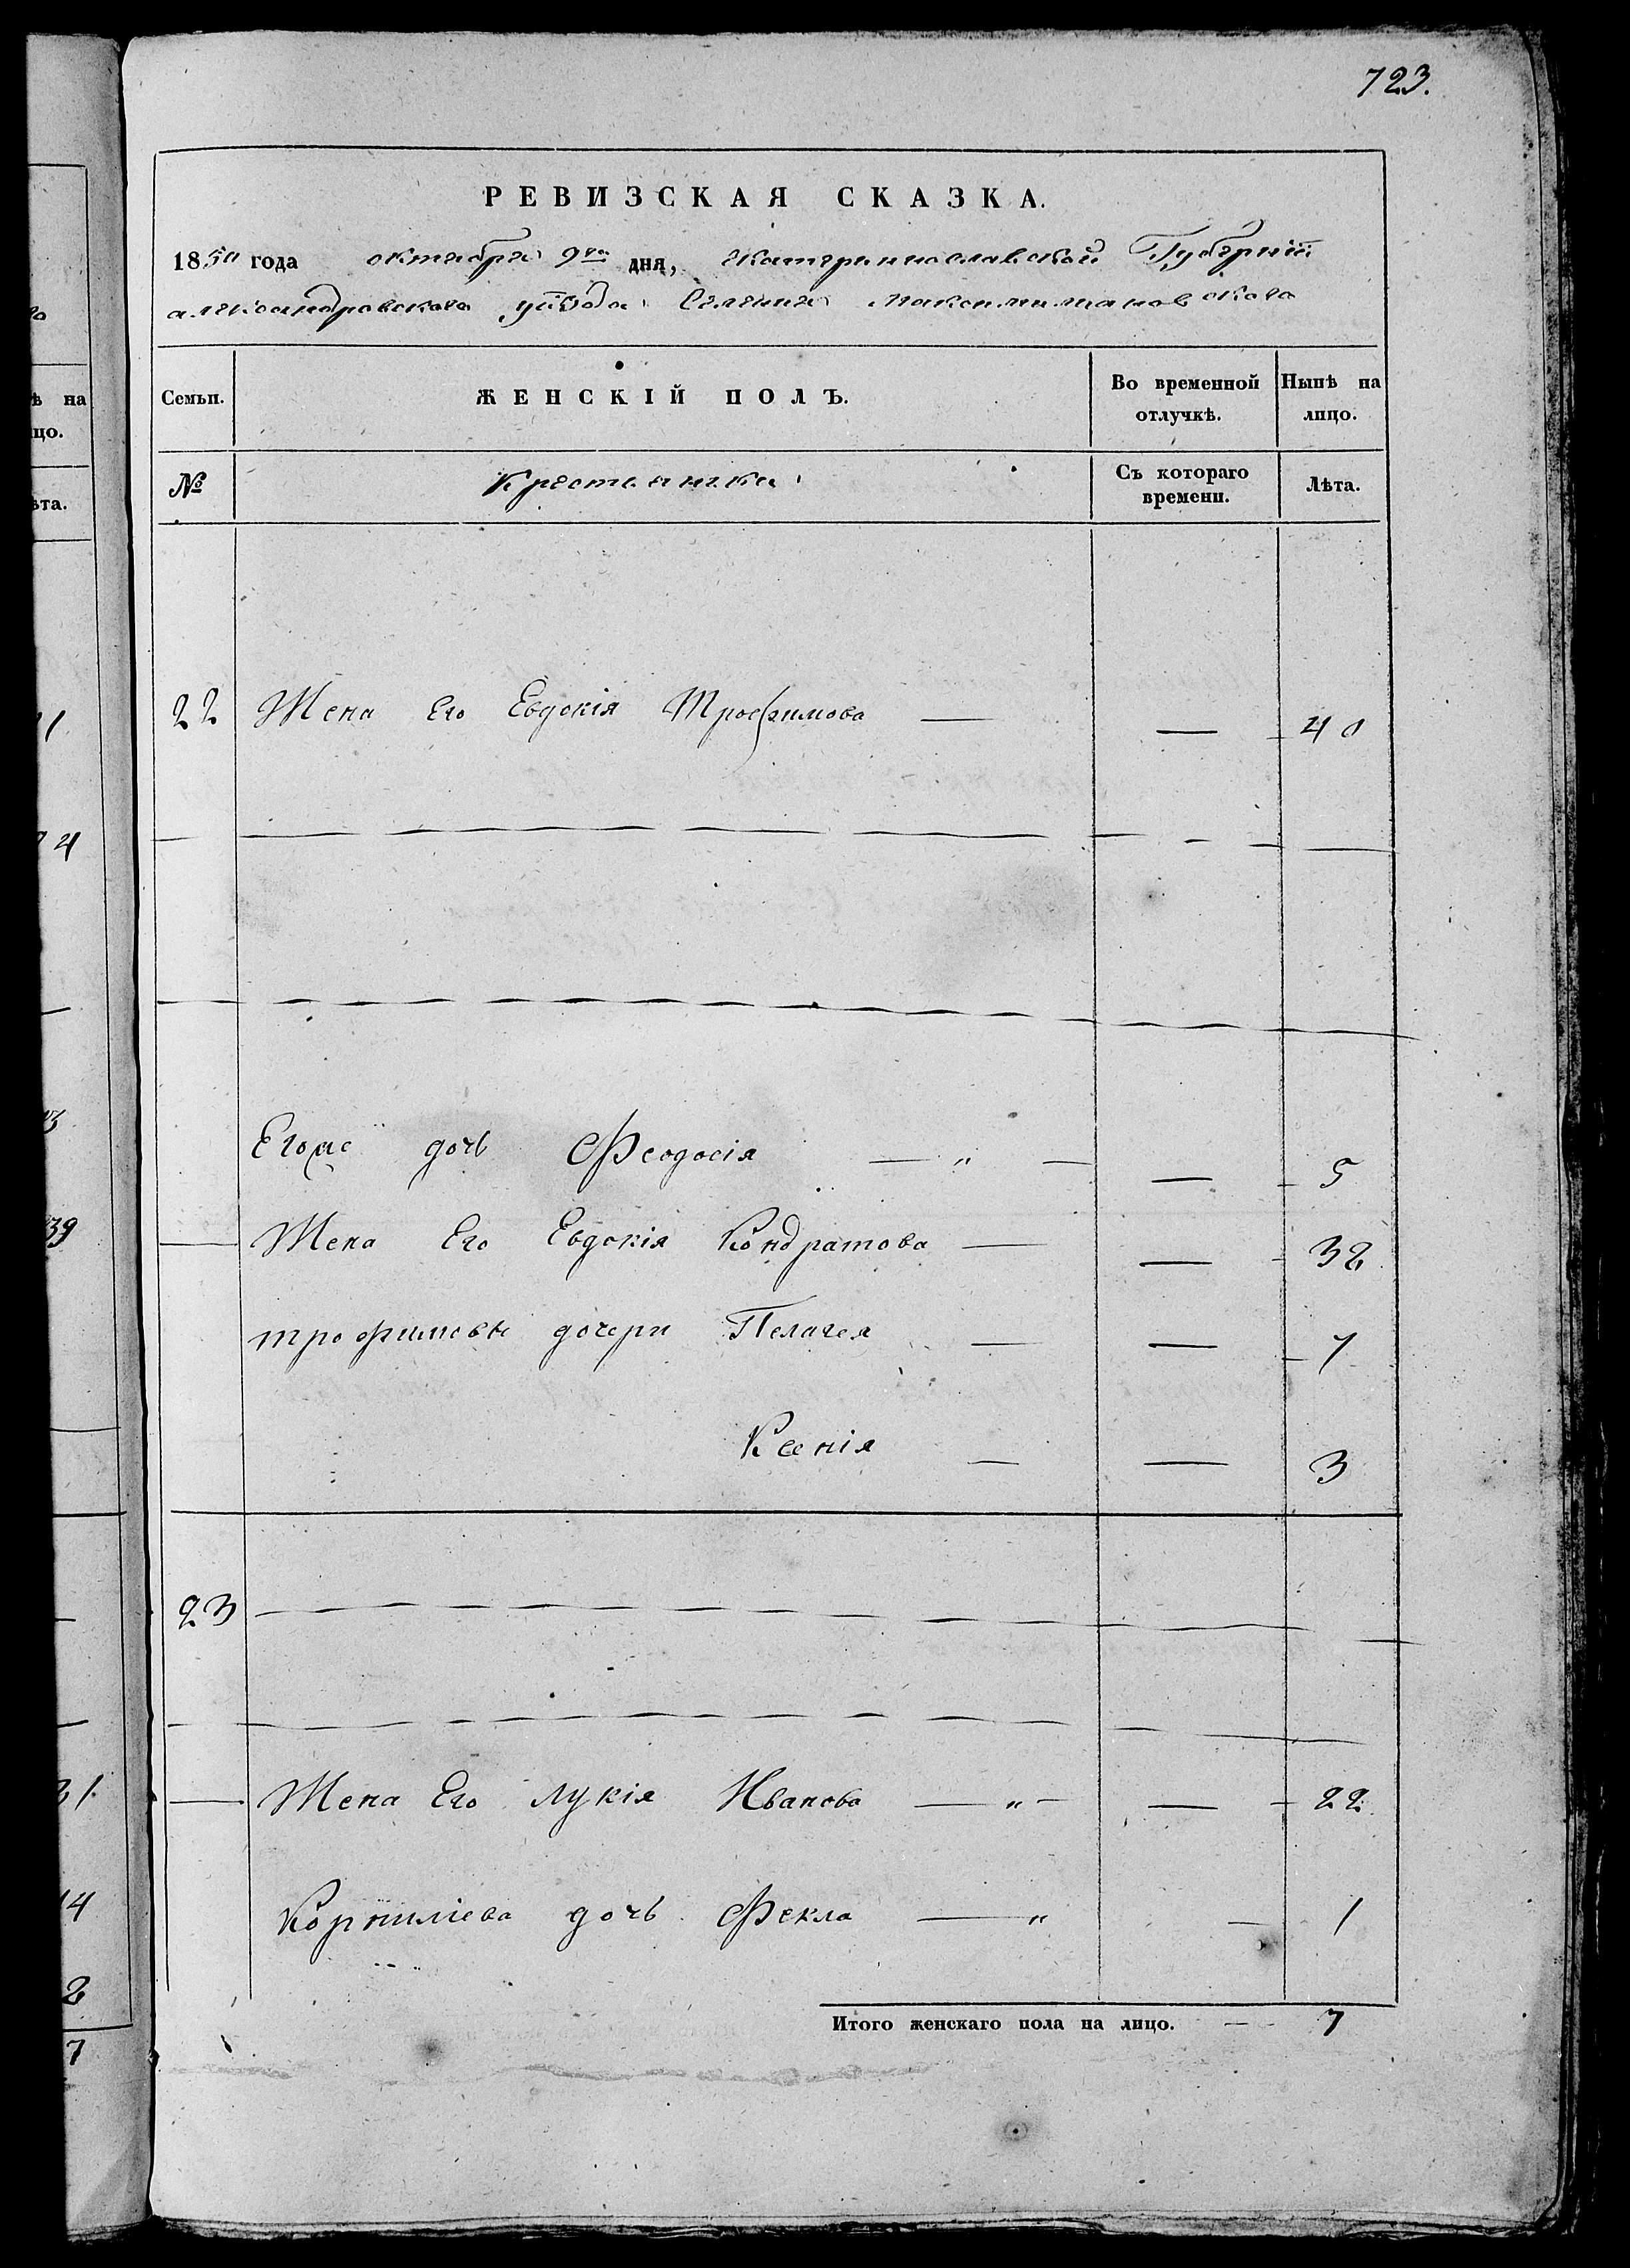 723.
РЕВИЗСКАЯ СКАЗКА.
1850 года октября 9го дня, Екатеринославской Губернии
александровскаго уѣзда Селения максимилиановскаго
Семьи. ЖЕНСКІЙ ПОЛЪ. Во временной отлучкѣ. Нынѣ на лицо.
№ Крестьянки Съ котораго времени. Лѣта.
22 Жена Его Евдокія Трофимова — — 40
Егоже дочь Феодосія — " — — 5
— Жена Его Евдокія Кондратова — — 32
трофимовы дочери Пелагея — — 7
Ксенія — — 3
23
— Жена Его Лукія Иванова — " — — 22
Корнилиева дочь Фекла — " — 1
Итого женскаго пола на лицо. — — 7
ѣ на
цо.
ѣта.
39